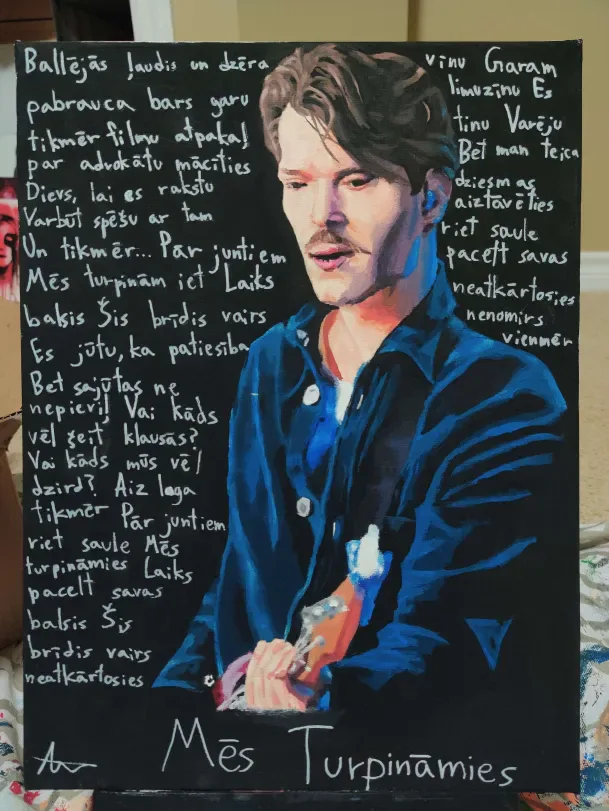 Ballējās ļaudis un dzēra vīnu Garam
pabrauca bars garu limuzīnu Es
tikmēr filmu atpakaļ tinu Varēju
par advokātu mācīties Bet man teica
Dievs, lai es rakstu dziesmas
Varbūt spēšu ar tam aiztāvēties
Un tikmēr... Pār juntiem riet saule
Mēs turpinām iet Laiks pacelt savas
balsis Šis brīdis vairs neatkārtosies
Es jūtu, ka patiesība nenomirs vienmēr
Bet sajūtas ne
nepieviļ Vai kāds
vēl šeit klausās?
Vai kāds mūs vēl
dzird? Aiz loga
tikmēr Pār juntiem
riet saule Mēs
turpināmies Laiks
pacelt savas
balsis Šis
brīdis vairs
neatkārtosies
Mēs Turpināmies